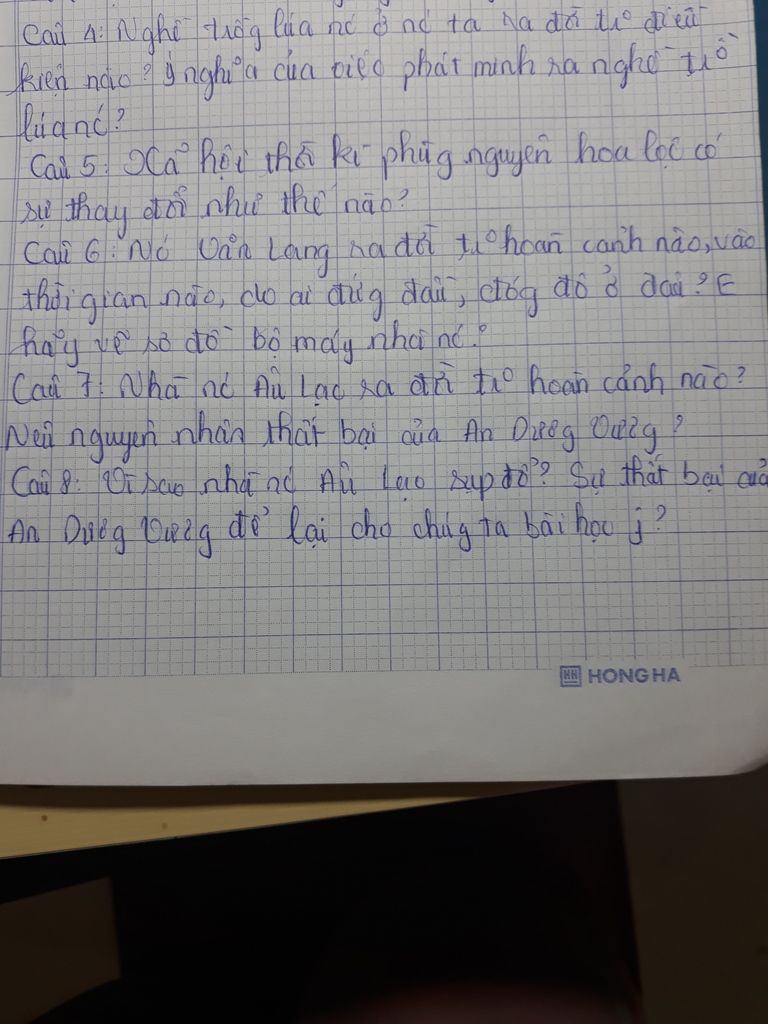 Câu 4: Nghề trồg lúa nc ở nc ta ra đời từ điều
kiện nào? Ý nghĩa của việc phát minh ra nghề trồ
lúa nc?
Câu 5: Xã hội thời kì phùg nguyên hoa lộc có
sự thay đổi như thế nào?
Câu 6: Nc Văn Lang ra đời từ hoàn cảnh nào, vào
thời gian nào, do ai đứg đầu, đóg đô ở đâu? E
hãy vẽ sơ đồ bộ máy nhà nc?
Câu 7: Nhà nc Âu Lạc ra đời từ hoàn cảnh nào?
Nêu nguyên nhân thất bại của An Dươg Vươg?
Câu 8: Vì sao nhà nc Âu Lạc sụp đổ? Sự thất bại củ
An Dươg Vươg để lại cho chúg ta bài học j?
HH HONG HA